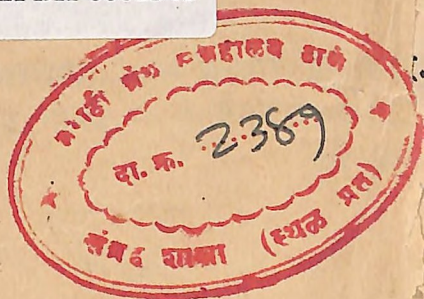 मराठी ग्रंथ संग्रहालय ठाणे
दा. क्र. 2389
संग्रह शाखा (स्थळ प्रत)